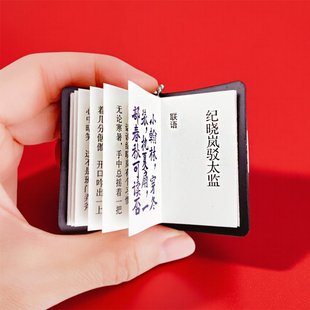 纪晓岚驳太监
联语
小翰林，穿冬
装，执夏扇，一
部春秋可读否
无论寒暑，手中总摇着一把
着几分傲慢 开口吟出一上